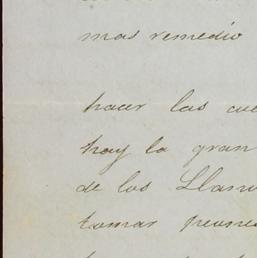 mas remedio
hacer las cue
hay la gran
de los Llan
tomar peones